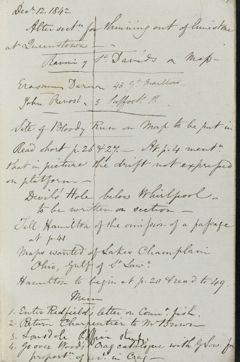 Decr 12. 1842
Alter sectn for thinning out of limestone
at Queenstown
Ravine of St Davids on Map
Erasmus Darwin 43 Gt Marlboro
John Prevost 3 Suffolk Pl
Site of Bloody Run on Map to be put in
Read short p. 26 & 27. At p. 4 mentn
that in picture the drift not expressed
on platform
Devil's Hole below Whirlpool
to be written on section
Tell Hamilton of the omission of a passage
at p. 41
Maps wanted of Lakes Champlain
Ohio, Gulf of St Law.
Hamilton to begin at p. 20 & read to 49
Mem
1. Enter Redfield's letter on Conn. fish.
2. Return Charpentier to Mr Brown
3. Lonsdale
4. George Wood's Crag catalogue with
proportn of in Crag